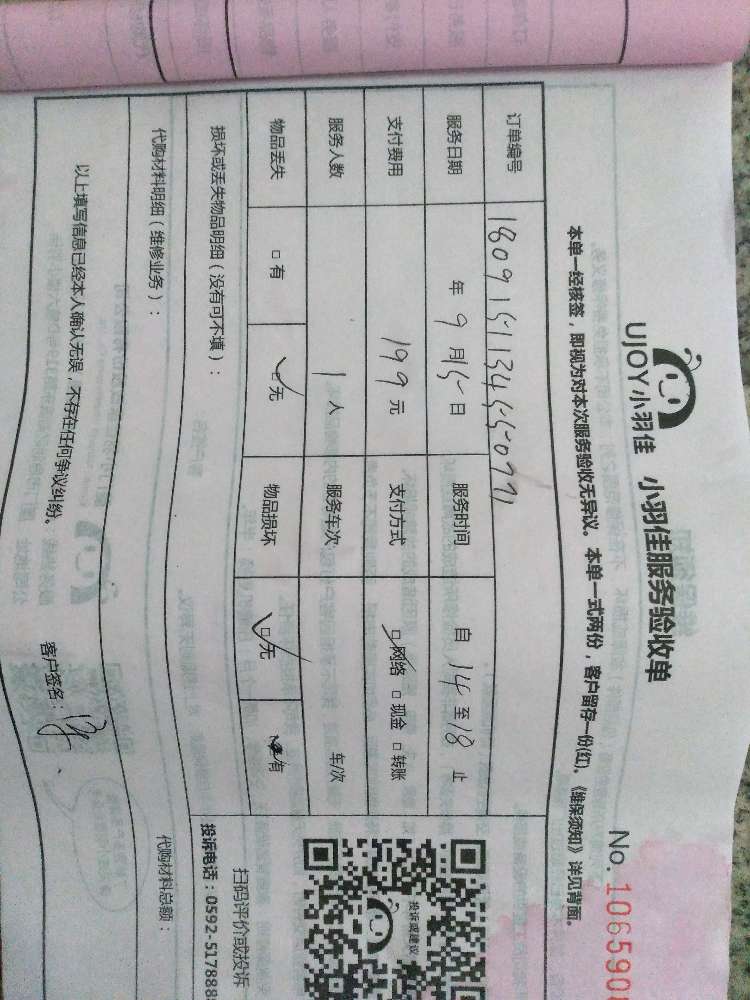 UJOY小羽佳 小羽佳服务验收单
No. 1065908
本单一经核签，即视为对本次服务验收无异议。本单一式两份，客户留存一份(红)。《维保须知》详见背面。
订单编号 1809151134550771
服务日期 年 9 月 15 日 服务时间 自 14 至 18 止
支付费用 199 元 支付方式 网络 现金 转账
服务人数 1 人 服务车次 车/次
物品丢失 有 无 物品损坏 无 有
损坏或丢失物品明细（没有可不填）：
代购材料明细（维修业务）： 代购材料总额：
以上填写信息已经本人确认无误，不存在任何争议纠纷。 客户签名：
投诉或建议
扫码评价或投诉
投诉电话：0592-5178888